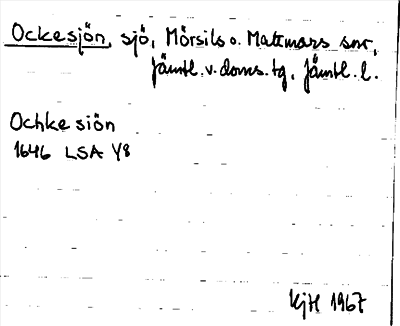 Ockesjön, sjö, Mörsils o. Mattmars snr,
Jämtl. v. doms. tg, Jämtl. l.
Ochke siön
1646 LSA Y8
KjH 1967